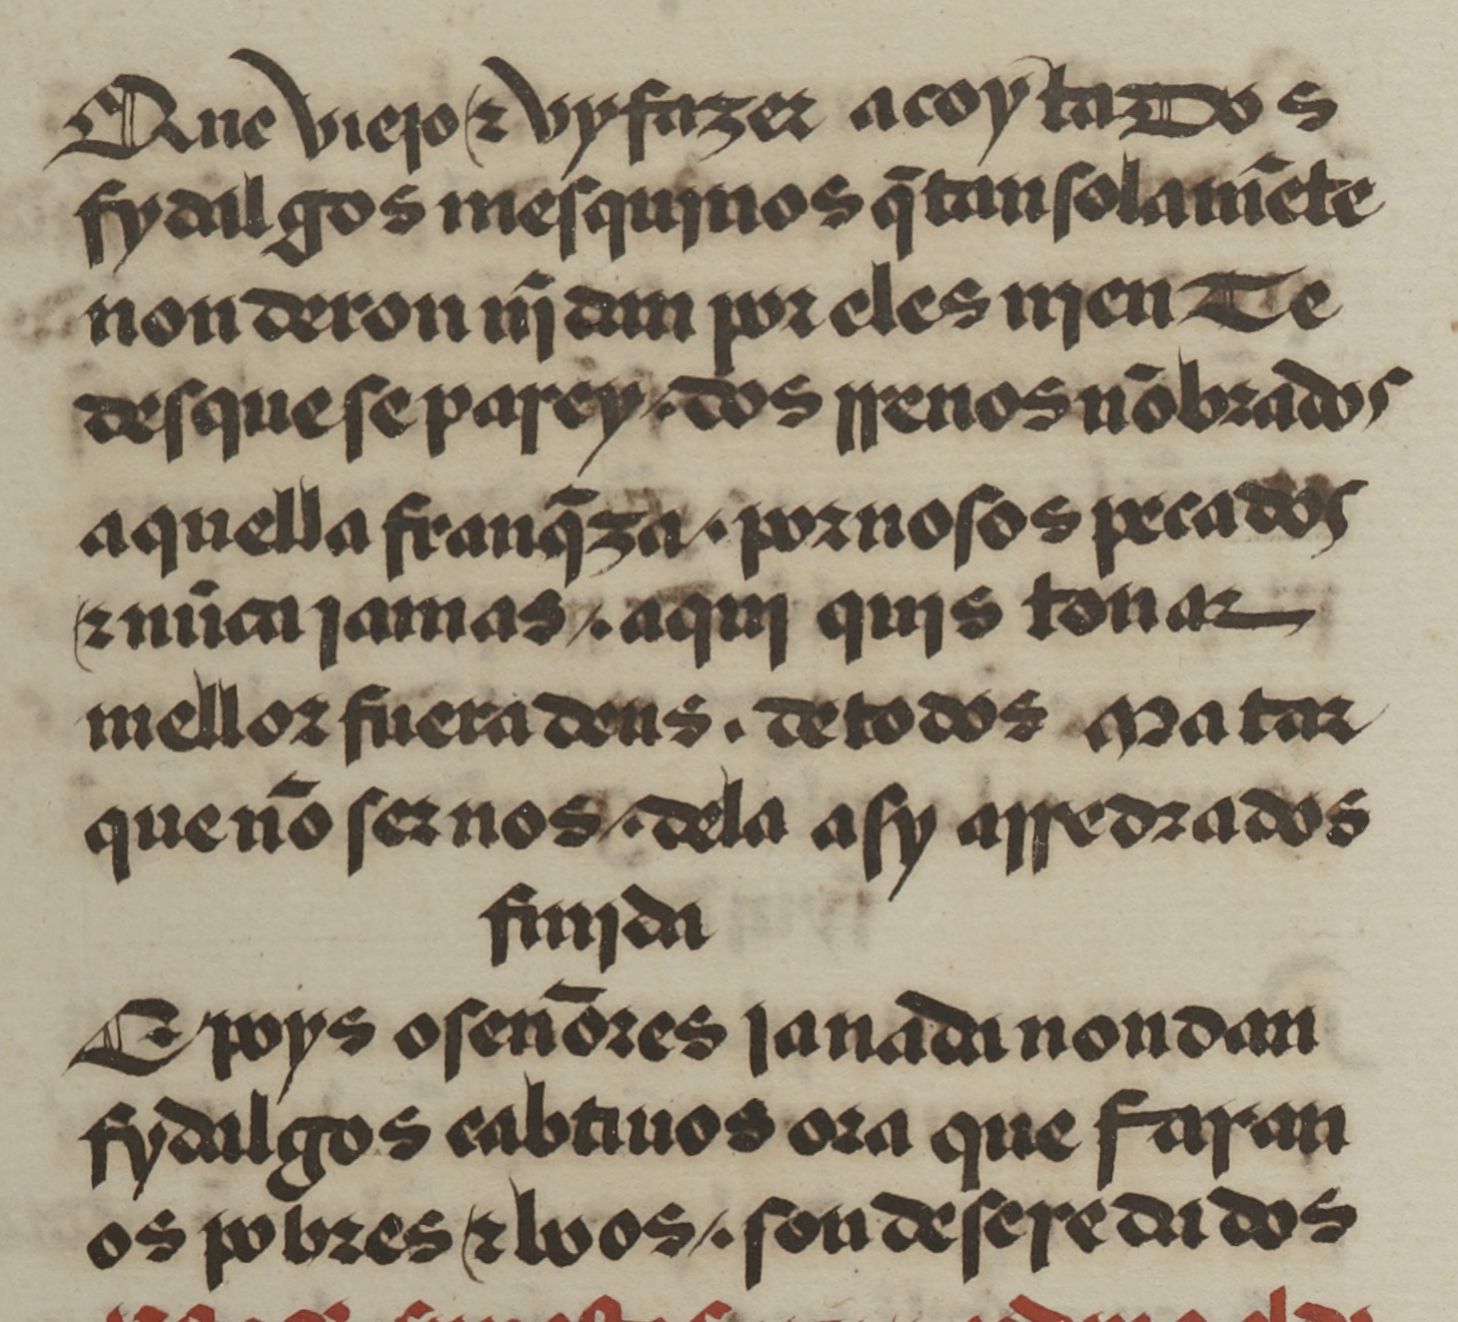 Que viejo ⁊ vy fazer acoytados
fydalgos mesquinos q̃ tan solamẽte
non deron nj̃ dan por eles njen te
desque se parey · dos rrenos nõbrados
aquella franq̃za · por nosos pecados
⁊ nũca jamas · aqui quis tonar
mellor fuera deus · de todos matar
que nõ ser nos · dela asy arredrados
finjda
E poys o señores ja nada non dan
fydalgos cabtiuos ora que faran
os pobres ⁊ lvos · son deseredados